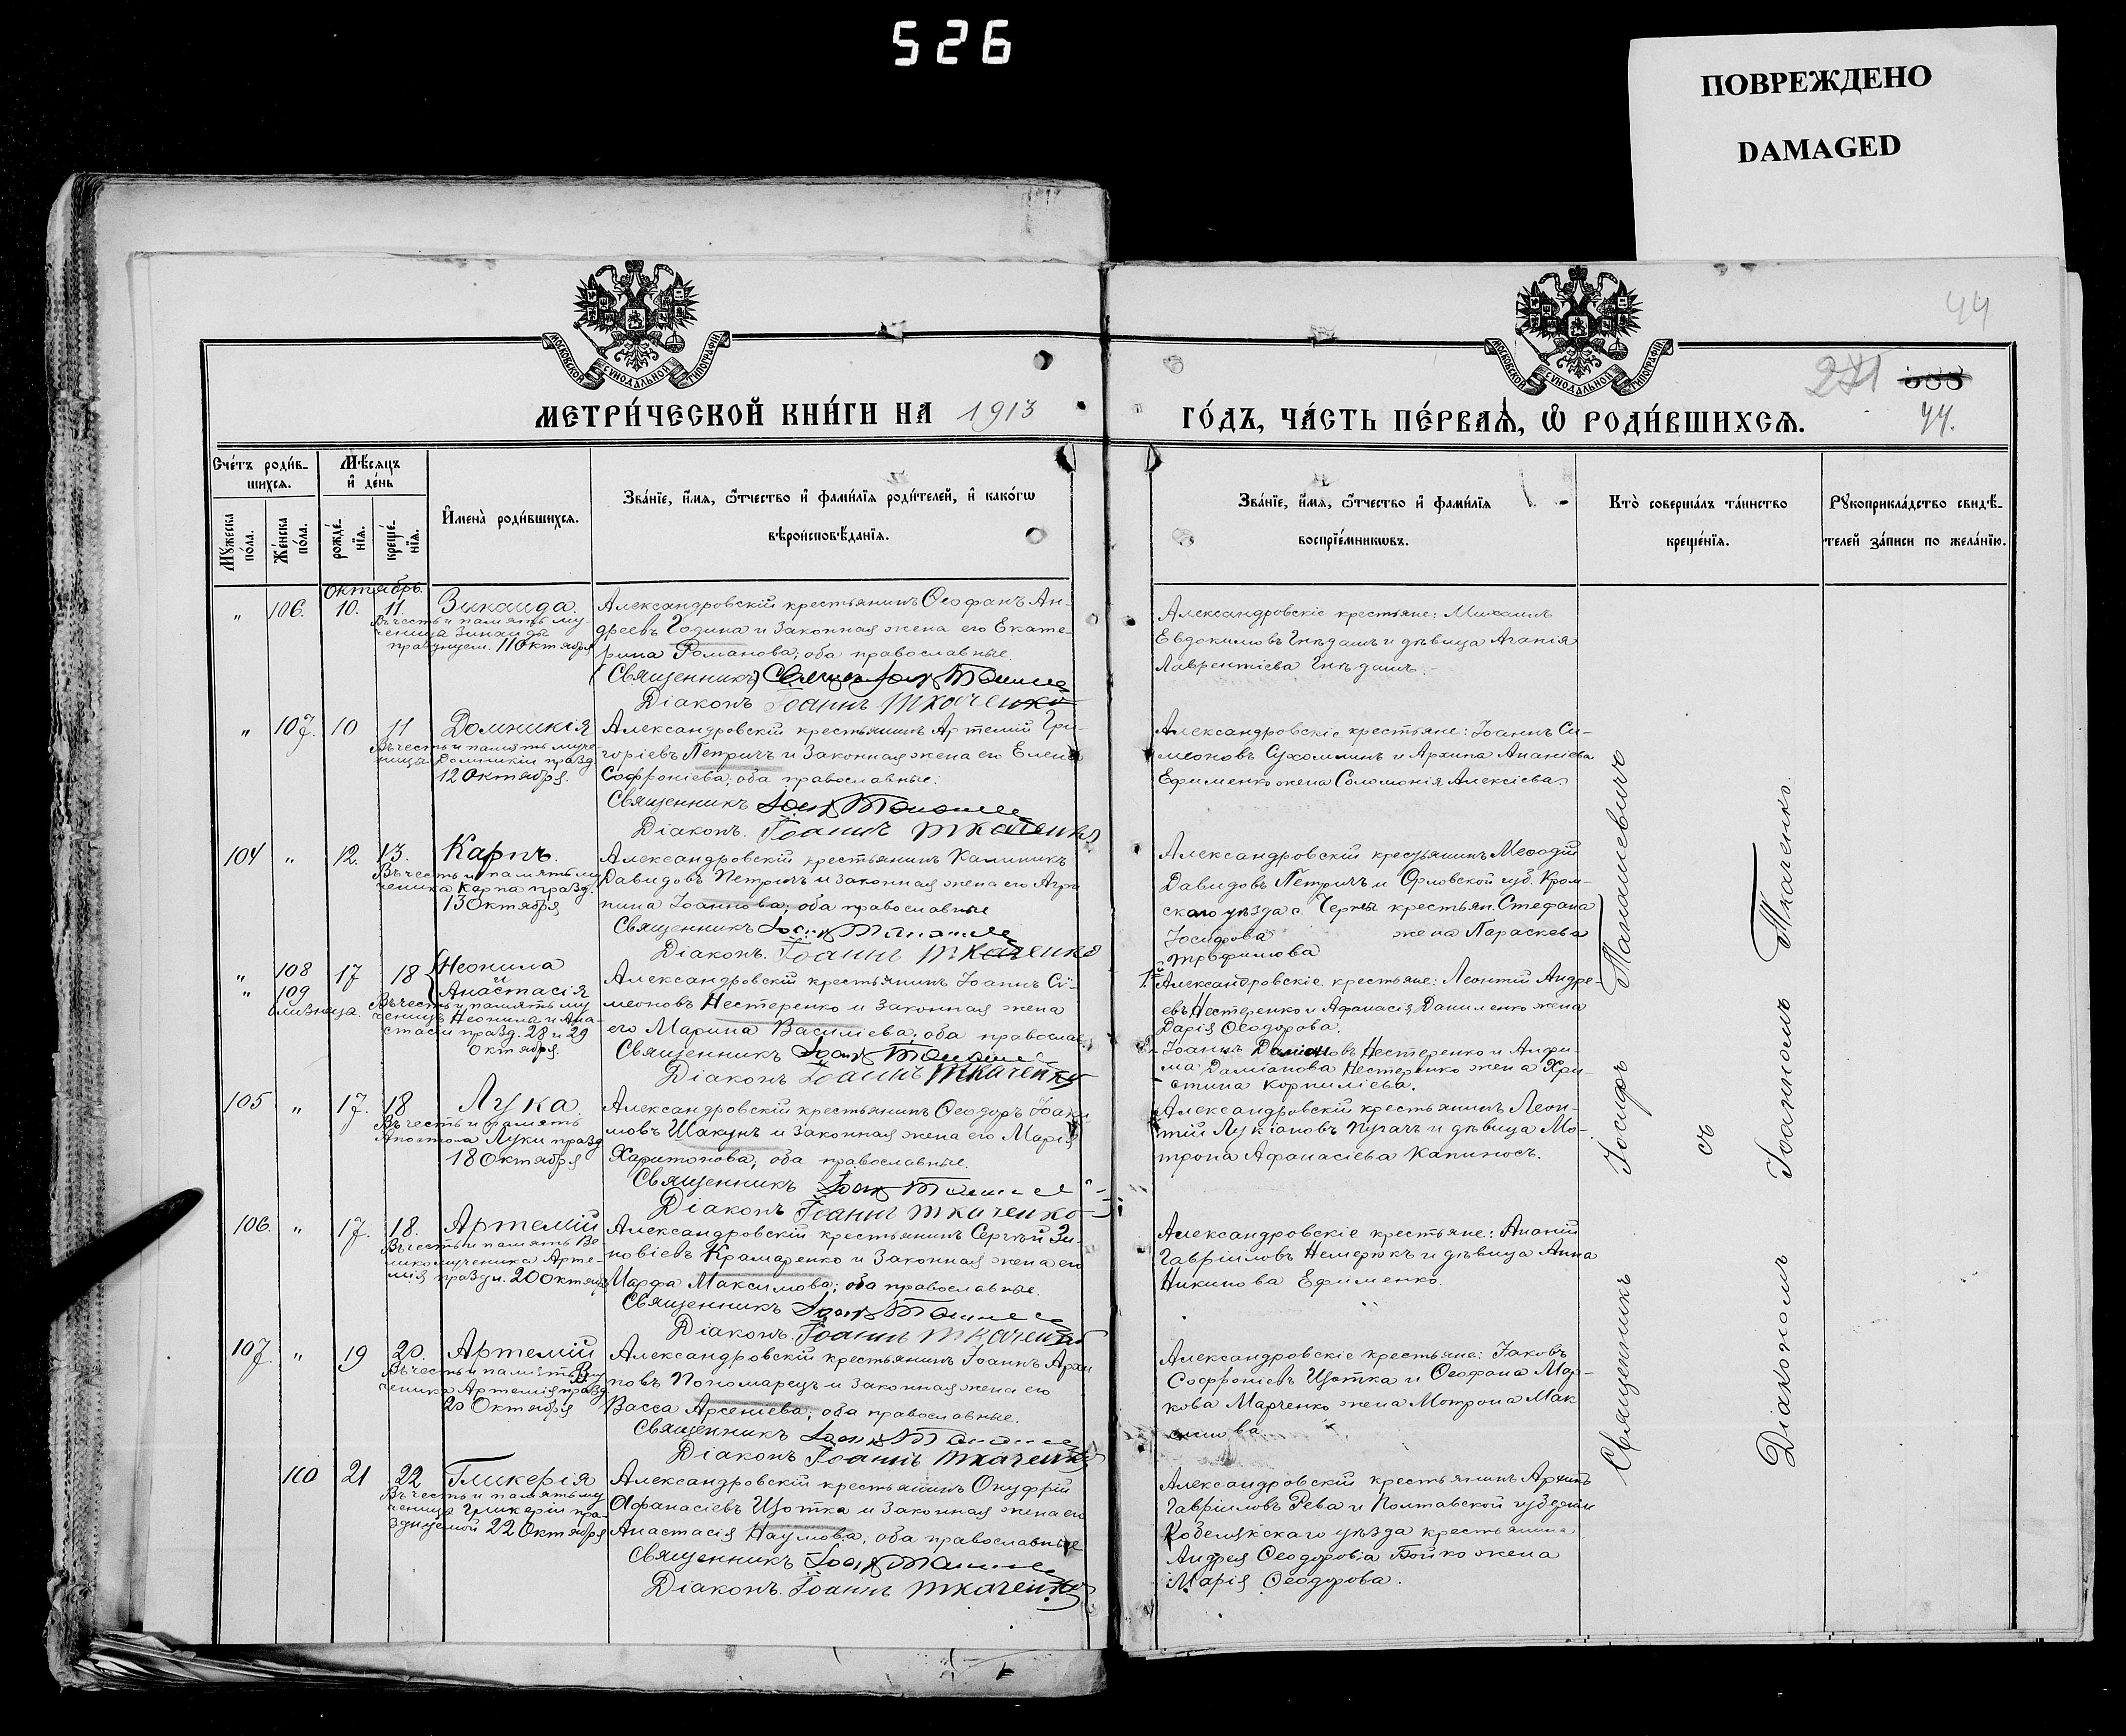 526
ПОВРЕЖДЕНО
DAMAGED
МОСКОВСКОЙ СѴНОДАЛЬНОЙ ТИПОГРАФІИ
МОСКОВСКОЙ СѴНОДАЛЬНОЙ ТИПОГРАФІИ
44
271 588
МЕТРИ́ЧЕСКОЙ КНИ́ГИ НА 1913
ГО́ДЪ, ЧА́СТЬ ПЕ́РВАѦ, Ѡ҆ РОДИ́ВШИХСѦ.
44.
Сче́тъ роди́в-
шихсѧ.
Мѣ́сѧцъ
и҆ де́нь
Мꙋжеска
по́ла.
Же́нска
по́ла.
рожде́-
нїѧ.
креще́-
нїѧ.
И҆мена̀ роди́вшихсѧ.
Зва́нїе, и҆́мѧ, ѻ҆́тчество и҆ фами́лїѧ роди́телей, и҆ како́гѡ
вѣроисповѣ́данїѧ.
Зва́нїе, и҆́мѧ, ѻ҆́тчество и҆ фами́лїѧ
воспрїе́мникѡвъ.
Кто̀ соверша́лъ та́инство
креще́нїѧ.
Рꙋкоприкла́дство свидѣ́-
телей за́писи по жела́нїю.
Октябрь.
" 106. 10. 11. Зинаида.
Въ честь и память му-
ченица Зинаиды
празднуем. 11 Октября
Александровскій крестьянинъ Ѳеофанъ Ан-
дреевъ Година и законная жена его Екате-
рина Романова; оба православные.
(Священникъ)
Діаконъ Іоаннъ Ткаченко
Александровскіе крестьяне: Михаилъ
Евдокимовъ Гнѣдашъ и дѣвица Агапія
Лаврентіева Гнѣдашъ.
" 107. 10 11 Домникія
Въ честь и память муче-
ницы Домникіи празд.
12 Октября.
Александровскій крестьянинъ Артемій Гри-
горіевъ Петричъ и законная жена его Елена
Софроніева; оба православные.
Священникъ
Діаконъ. Іоаннъ Ткаченко
Александровскіе крестьяне: Іоаннъ Си-
меоновъ Сухомлинъ и Архипа Ананіева
Ефименко жена Соломонія Алексіева.
104 " 12. 13. Карпъ.
Въ честь и память му-
ченика Карпа празд.
13 Октября
Александровскій крестьянинъ Калиникъ
Давидовъ Петричъ и законная жена его Агри-
пина Іоаннова; оба православные
Священникъ
Діаконъ. Іоаннъ Ткаченко
Александровскій крестьянинъ Меѳодій
Давидовъ Петричъ и Орловской губ. Кром-
скаго уѣзда с. Черни крестьян. Стефана
Іосифова жена Параскева
Трофимова
" 108 17 18 Неонила
" 109 и Анастасія
близнеца.
Въ честь и память му-
ченицъ Неонила и Ана-
стасіи празд. 28 и 29
Октября.
Александровскій крестьянинъ Іоаннъ Си-
меоновъ Нестеренко и законная жена
его Марина Василіева; оба православ.
Священникъ
Діаконъ Іоаннъ Ткаченко
1. Александровскіе крестьяне: Леонтій Андре-
евъ Нестеренко и Афанасія Даниленко жена
Дарія Ѳеодорова.
2. Іоаннъ Даміановъ Нестеренко и Анфи-
ма Даміанова Нестеренко жена Хри-
стина Корниліева.
105 " 17. 18 Лука.
Въ честь и память
Апостола Луки празд
18 Октября
Александровскій крестьянинъ Ѳеодоръ Іоаки-
мовъ Шакунъ и законная жена его Марія
Харитонова, оба православные.
Священникъ
Діаконъ Іоаннъ Ткаченко
Александровскій крестьянинъ Леон-
тій Лукіановъ Пугачъ и дѣвица Мо-
трона Афанасіева Капиносъ.
106. " 17. 18. Артемій
Въ честь и память Ве-
ликомученика Арте-
мія праздн. 20 Октября
Александровскій крестьянинъ Сергѣй Зи-
новіевъ Крамаренко и законная жена его
Марфа Максимова; оба православные.
Священникъ
Діаконъ. Іоаннъ Ткаченко
Александровскіе крестьяне: Ананій
Гавріиловъ Немерюкъ и дѣвица Анна
Никинова Ефименко.
107 " 19 20. Артемій
Въ честь и память Вму-
ченика Артемія празд.
20 Октября
Александровскій крестьянинъ Іоаннъ Архи-
повъ Пономарецъ и законная жена его
Васса Арсеніева; оба православные.
Священникъ
Діаконъ Іоаннъ Ткаченко
Александровскіе крестьяне: Іаковъ
Софроніевъ Щотка и Ѳеофана Мар-
кова Марченко жена Мотрона Мак-
симова
110 21 22 Гликерія
Въ честь и память му-
ченицы Гликеріи пра-
зднуемой 22 Октября
Александровскій крестьянинъ Онуфрій
Афанасіевъ Щотка и законная жена его
Анастасія Наумова, оба православные
Священникъ
Діаконъ. Іоаннъ Ткаченко
Александровскій крестьянинъ Архипъ
Гавріиловъ Рева и Полтавской губерніи
Кобелякскаго уѣзда крестьянина
Андрея Ѳеодоровіа Бойко жена
Марія Ѳеодорова.
Священникъ Іосифъ
съ
Діакономъ Іоанномъ Ткаченко.